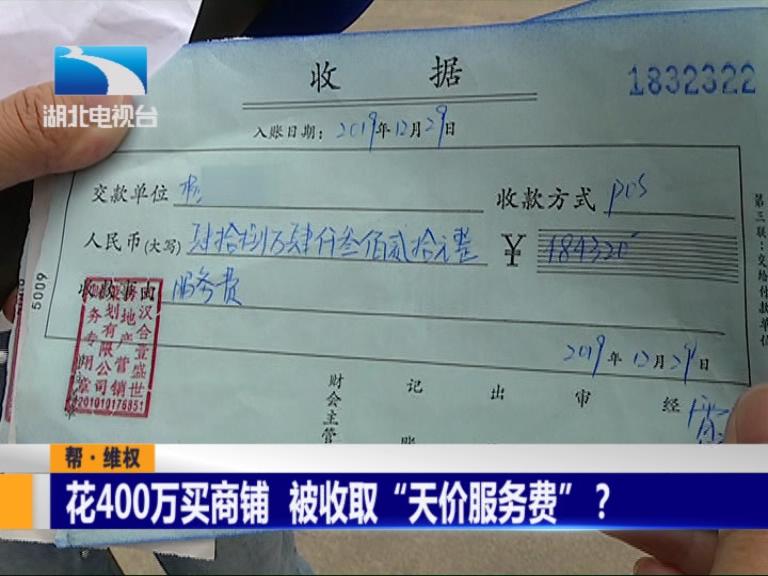 湖北电视台
收 据
1832322
入账日期：2019年12月29日
交款单位
收款方式 pos
人民币(大写) 肆拾捌万肆仟叁佰贰拾元整 ¥
收款事由 服务费
汉合壹盛世
地产营销
划有限公司
务专用章
201010176851
5009
第三联：交给付款单位
2019年12月29日
财会主管
记账
出
审
经
帮·维权
花400万买商铺 被收取“天价服务费”？